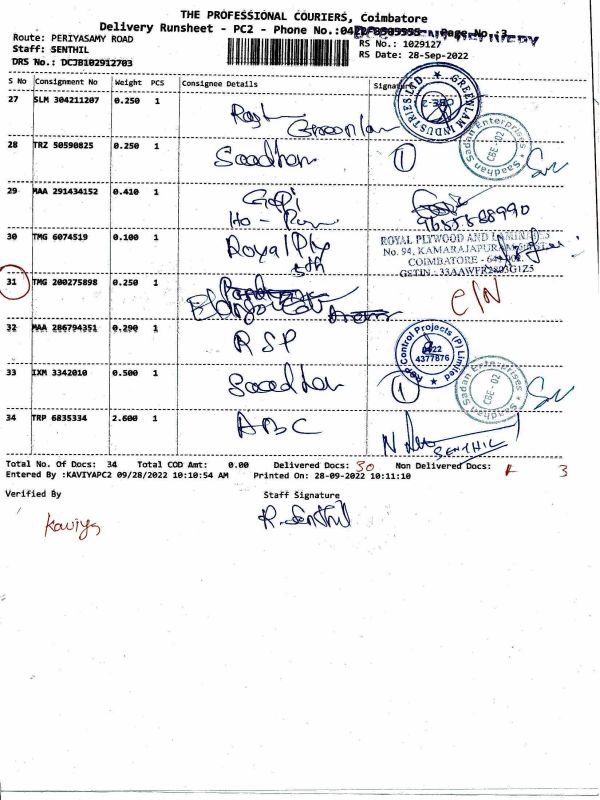 THE PROFESSIONAL COURIERS, Coimbatore
Delivery Runsheet - PC2 - Phone No.: Page No.:3
Route: PERIYASAMY ROAD
RS No.: 1029127
Staff: SENTHIL
RS Date: 28-Sep-2022
DRS No.: DCJB102912703
S No Consignment No Weight PCS Consignee Details Signature
27 SLM 304211207 0.250 1
GREENLAM INDUSTRIES LTD.
CBE-2
28 TRZ 50590825 0.250 1 Saadhan 1
Saadhan Sadan Enterprises
CBE - 02
29 MAA 291434152 0.410 1 Gopi
30 TMG 6074519 0.100 1 Royal Ply
ROYAL PLYWOOD AND LAMINATES
No. 94, KAMARAJAPURAM
COIMBATORE - 641 001.
GSTIN.: 33AAWFR2803G1Z5
31 TMG 200275898 0.250 1 C/N
32 MAA 286794351 0.290 1 RSP
RSP Control Projects (P) Limited
0422
4377876
33 IXM 3342010 0.500 1 Saadhan 1
Saadhan Sadan Enterprises
CBE - 02
34 TRP 6835334 2.600 1 ABC
SENTHIL
Total No. Of Docs: 34 Total COD Amt: 0.00 Delivered Docs: 30 Non Delivered Docs: 3
Entered By :KAVIYAPC2 09/28/2022 10:10:54 AM Printed On: 28-09-2022 10:11:10
Verified By Staff Signature
Kaviya R. Senthil